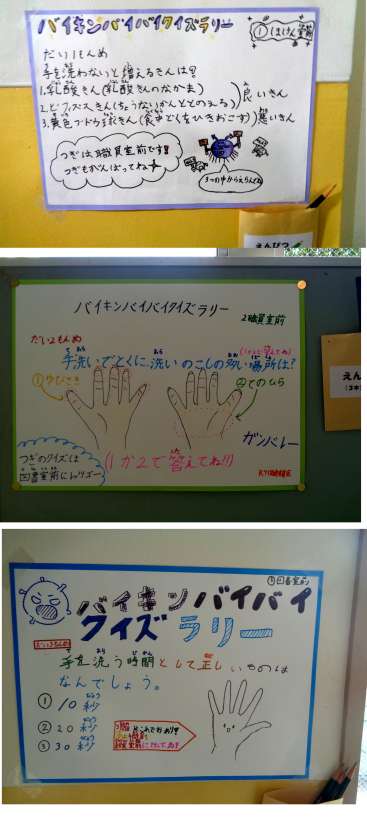 バイキンバイバイクイズラリー
①ほけん室前
だい1もんめ
手を洗わないと増えるきんは?
1.乳酸きん(乳酸きんのなかま)
2.ビフィズスきん(ちょうないかんきょうととのえる)
良いきん
3.黄色ブドウ球きん(食中どくをひきおこす)悪いきん
つぎは職員室前です!!
つぎもがんばってね
3つの中からえらんでね
えんぴつ
バイキンバイバイクイズラリー
2職員室前
だい2もんめ
手洗いでとくに洗いのこしの多い場所は?
①ゆびさき
②てのひら
ガンバレー
つぎのクイズは
図書室前にレッツゴー
(1か2で答えてね!!)
えん
③図書室前
バイキンバイバイ
クイズラリー
だい3もんめ
手を洗う時間として正しいものは
なんでしょう。
① 10秒
② 20秒
③ 30秒